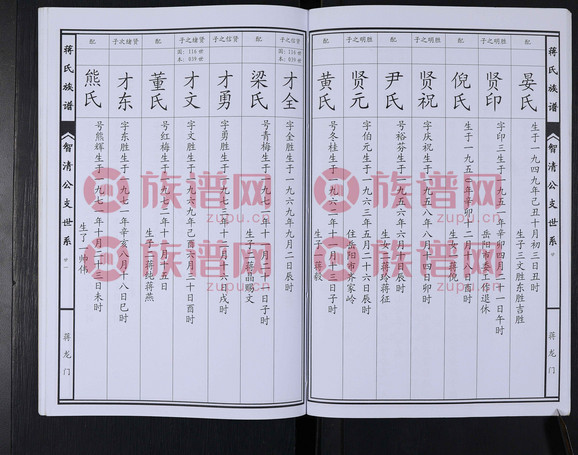 蒋氏族谱
智清公支世系
蒋龙门
晏氏
生于一九四九年己丑十月初三日丑时
生子三文胜东胜吉胜
子之明胜
贤印
字印三生于一九五一年辛卯四月二十一日午时
岳阳市委工作退休
配
倪氏
生于一九五一年辛卯十二月十八日酉时
生女一蒋倪
子之明胜
贤祝
字庆祝生于一九五八年八月十四日卯时
配
尹氏
号裕芬生于一九五六年六月十日辰时
生女二蒋玲蒋征
子之明胜
贤元
字伯元生于一九六二年五月二十六日辰时
住岳阳市齐家岭
配
黄氏
号冬桂生于一九六一年十一月十三日子时
生子一蒋毅
子之信贤
国:116世
本:039世
才全
字金胜生于一九六九年九月二日辰时
配
梁氏
号青梅生于一九七一年十一月二十一日子时
生子二蒋晶赐文
子之信贤
才勇
字勇胜生于一九七二年十月十六日戌时
子之绪贤
国:116世
本:039世
才文
字文胜生于一九六九年己酉六月三十日酉时
配
董氏
号红梅生于一九七二年十月十五日
生子二蒋纯蒋燕
子次绪贤
才东
字东胜生于一九七一年辛亥八月十八日巳时
配
熊氏
号熊辉生于一九七二年十月二十三日未时
生子一帅伟
蒋氏族谱
智清公支世系
蒋龙门
族谱网
zupu.cn